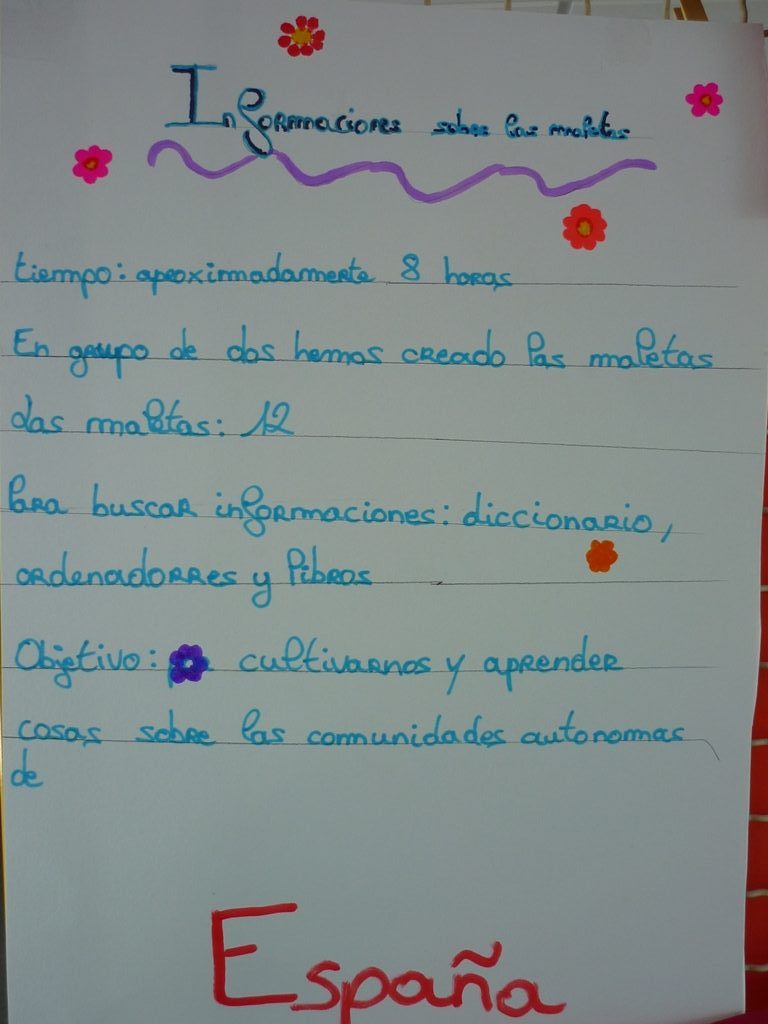 Informaciones sobre las maletas
tiempo: aproximadamente 8 horas
En grupo de dos hemos creado las maletas
das maletas: 12
Para buscar informaciones: diccionario,
ordenadorres y libros
Objetivo: cultivarnos y aprender
cosas sobre las comunidades autonomas
de
España